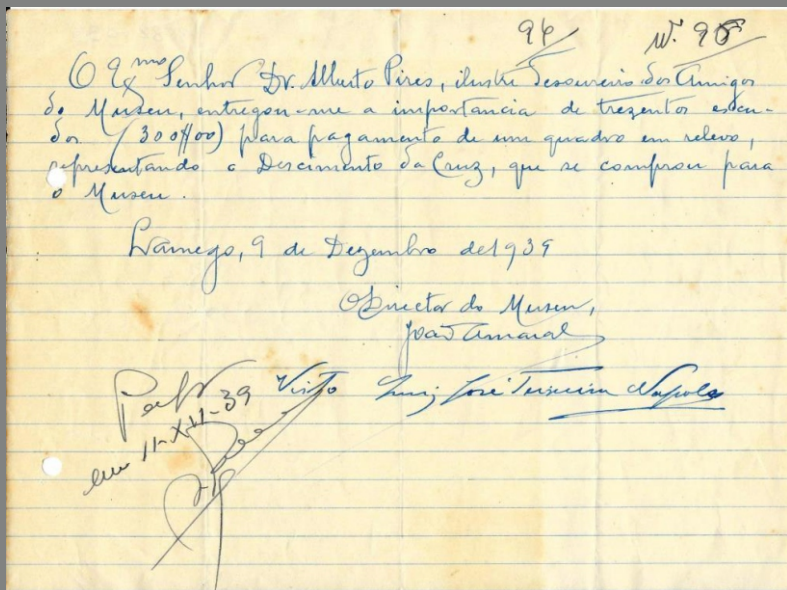 94 Nº 98
O Exmo Senhor Dr. Alberto Pires, ilustre Tesoureiro dos Amigos
do Museu, entregou-me a importancia de trezentos escu-
dos (300$00) para pagamento de um quadro em relevo,
representando o Descimento da Cruz, que se comprou para
o Museu.
Lamego, 9 de Dezembro de 1939
O Director do Museu,
João Amaral
Visto Luiz José Teixeira Napoles
em 11-XII-39